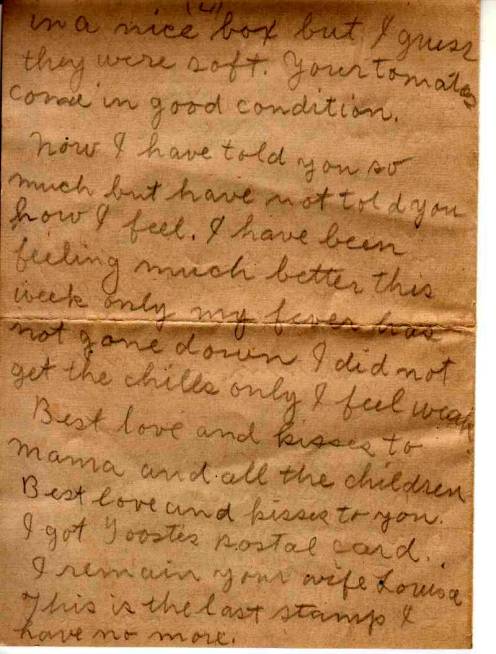 (4)
in a nice box but I guess
they were soft. Your tomatoes
come in good condition.
Now I have told you so
much but have not told you
how I feel. I have been
feeling much better this
week only my fever has
not gone down I did not
get the chills only I feel weak
Best love and kisses to
mama and all the children
Best love and kisses to you.
I got Toostes postal card.
I remain your wife Louisa
This is the last stamp I
have no more.